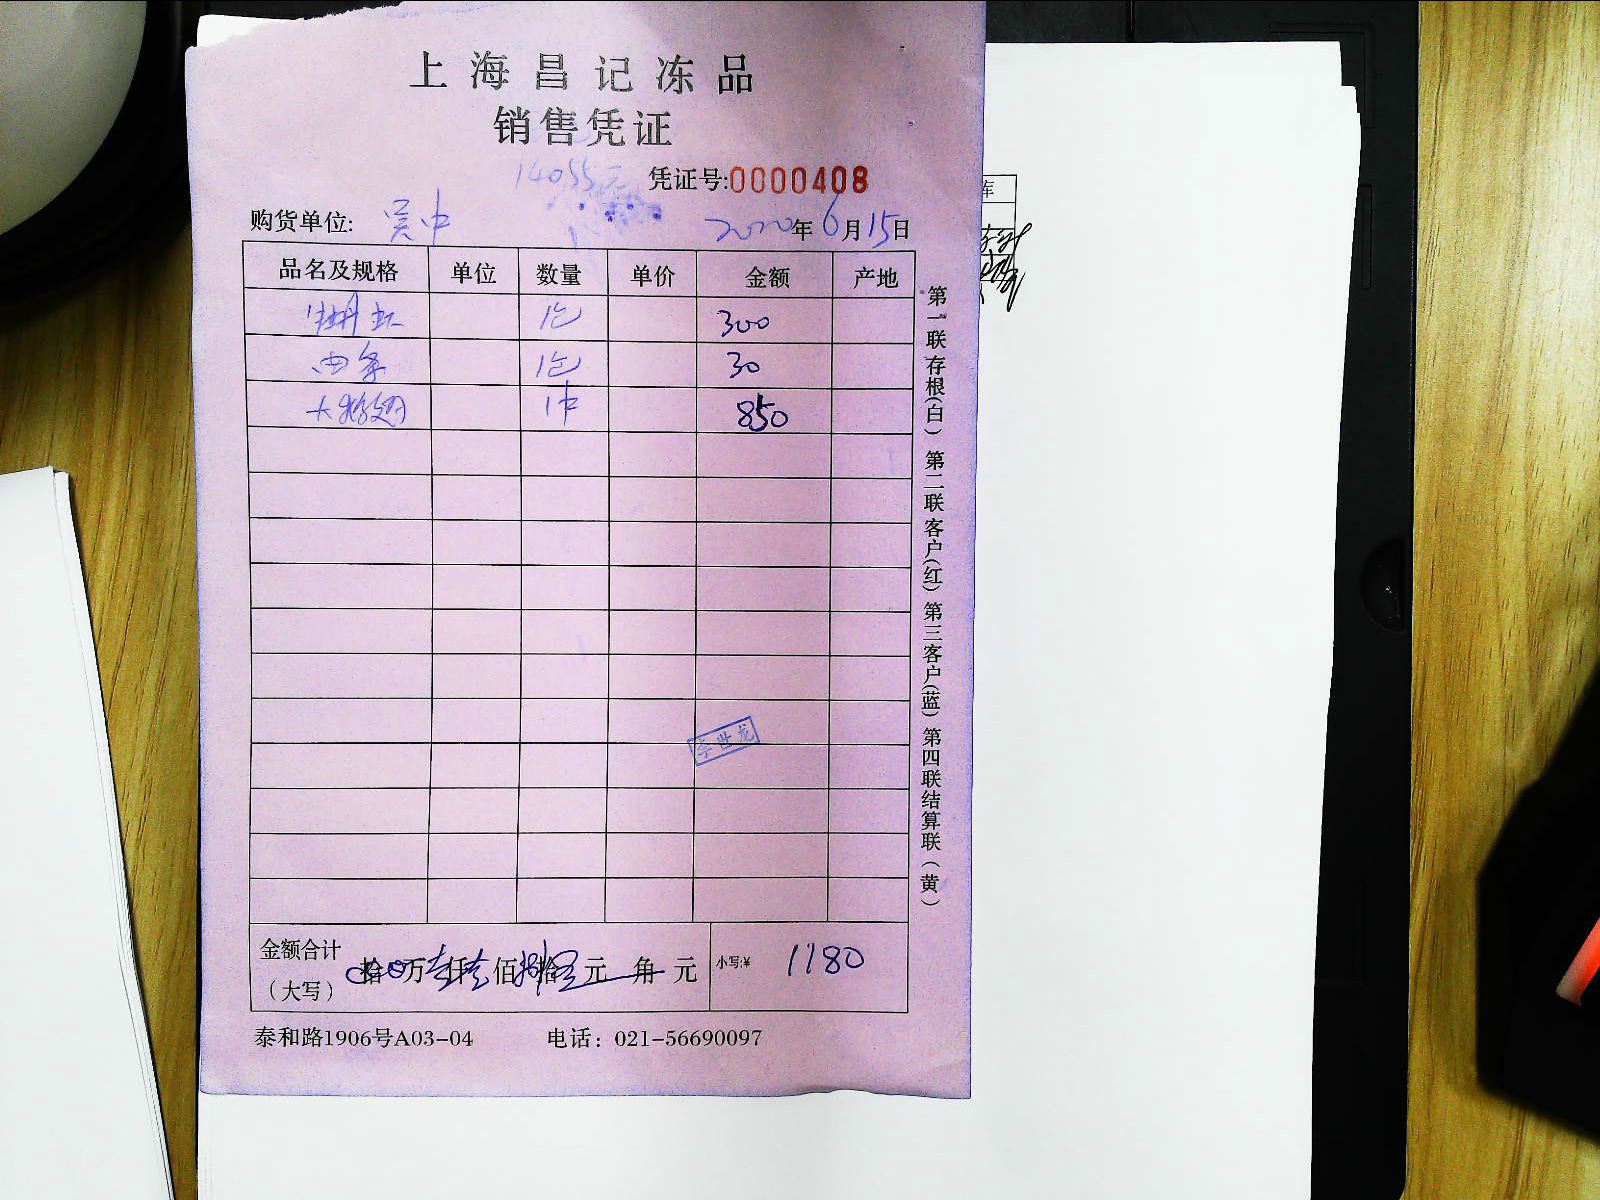 上海昌记冻品
销售凭证
14055元
凭证号:0000408
购货单位: 吴中 2020年6月15日
品名及规格 单位 数量 单价 金额 产地
300
30
大 1件 850
李世龙
金额合计（大写） 拾万壹仟壹佰捌拾元角元 小写:¥ 1180
泰和路1906号A03-04 电话：021-56690097
第一联存根(白) 第二联客户(红) 第三客户(蓝) 第四联结算联(黄)
库